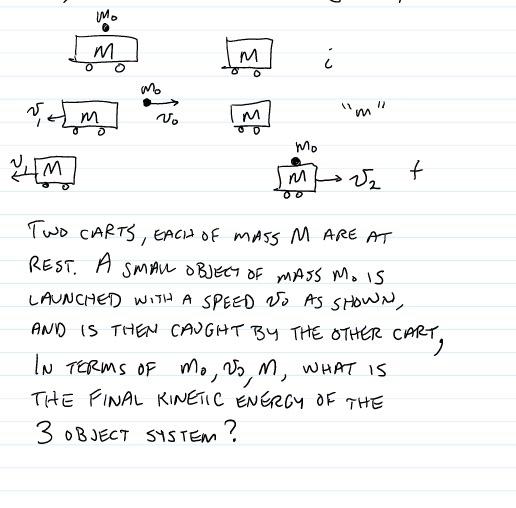 m₀
M M i
m₀
v₁ M v₀ M "m"
m₀
v₁ M M v₂ f
TWO CARTS, EACH OF MASS M ARE AT
REST. A SMALL OBJECT OF MASS M₀ IS
LAUNCHED WITH A SPEED v₀ AS SHOWN,
AND IS THEN CAUGHT BY THE OTHER CART,
IN TERMS OF m₀, v₀, M, WHAT IS
THE FINAL KINETIC ENERGY OF THE
3 OBJECT SYSTEM?